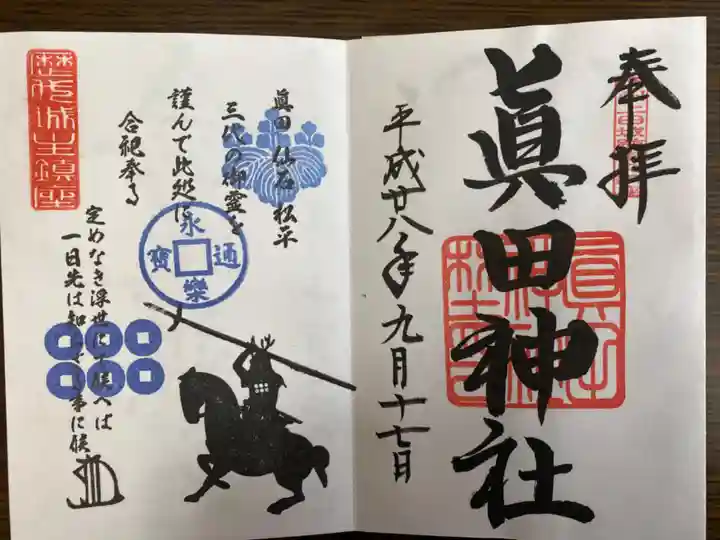 奉拝
眞田神社
平成廿八年九月十七日
眞田 仙石 松平
三代の御霊を
謹んで此処に
合祀奉る
歴代城主鎮座
永樂通寳
定めなき浮世にて候へば
一日先は知らざる事に候